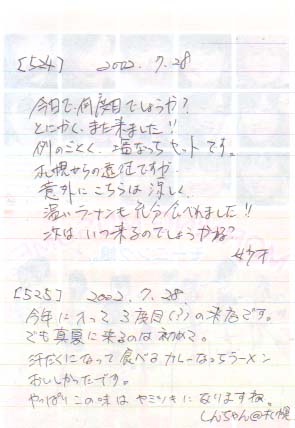 [524] 2002.7.28
今日で、何度目でしょうか?
とにかく、また来ました!!
例のごとく、塩なっちセットです。
札幌からの遠征ですが、
意外にこちらは涼しく、
温いラーメンも充分食べれました!!
次は いつ来るのでしょうかね?
[525] 2002.7.28.
今年に入って3度目(?)の来店です。
でも真夏に来るのは初めて。
汗だくになって食べるカレーなっちラーメン
おいしかったです。
やっぱりこの味はヤミツキになりますね。
しんちゃん@札幌